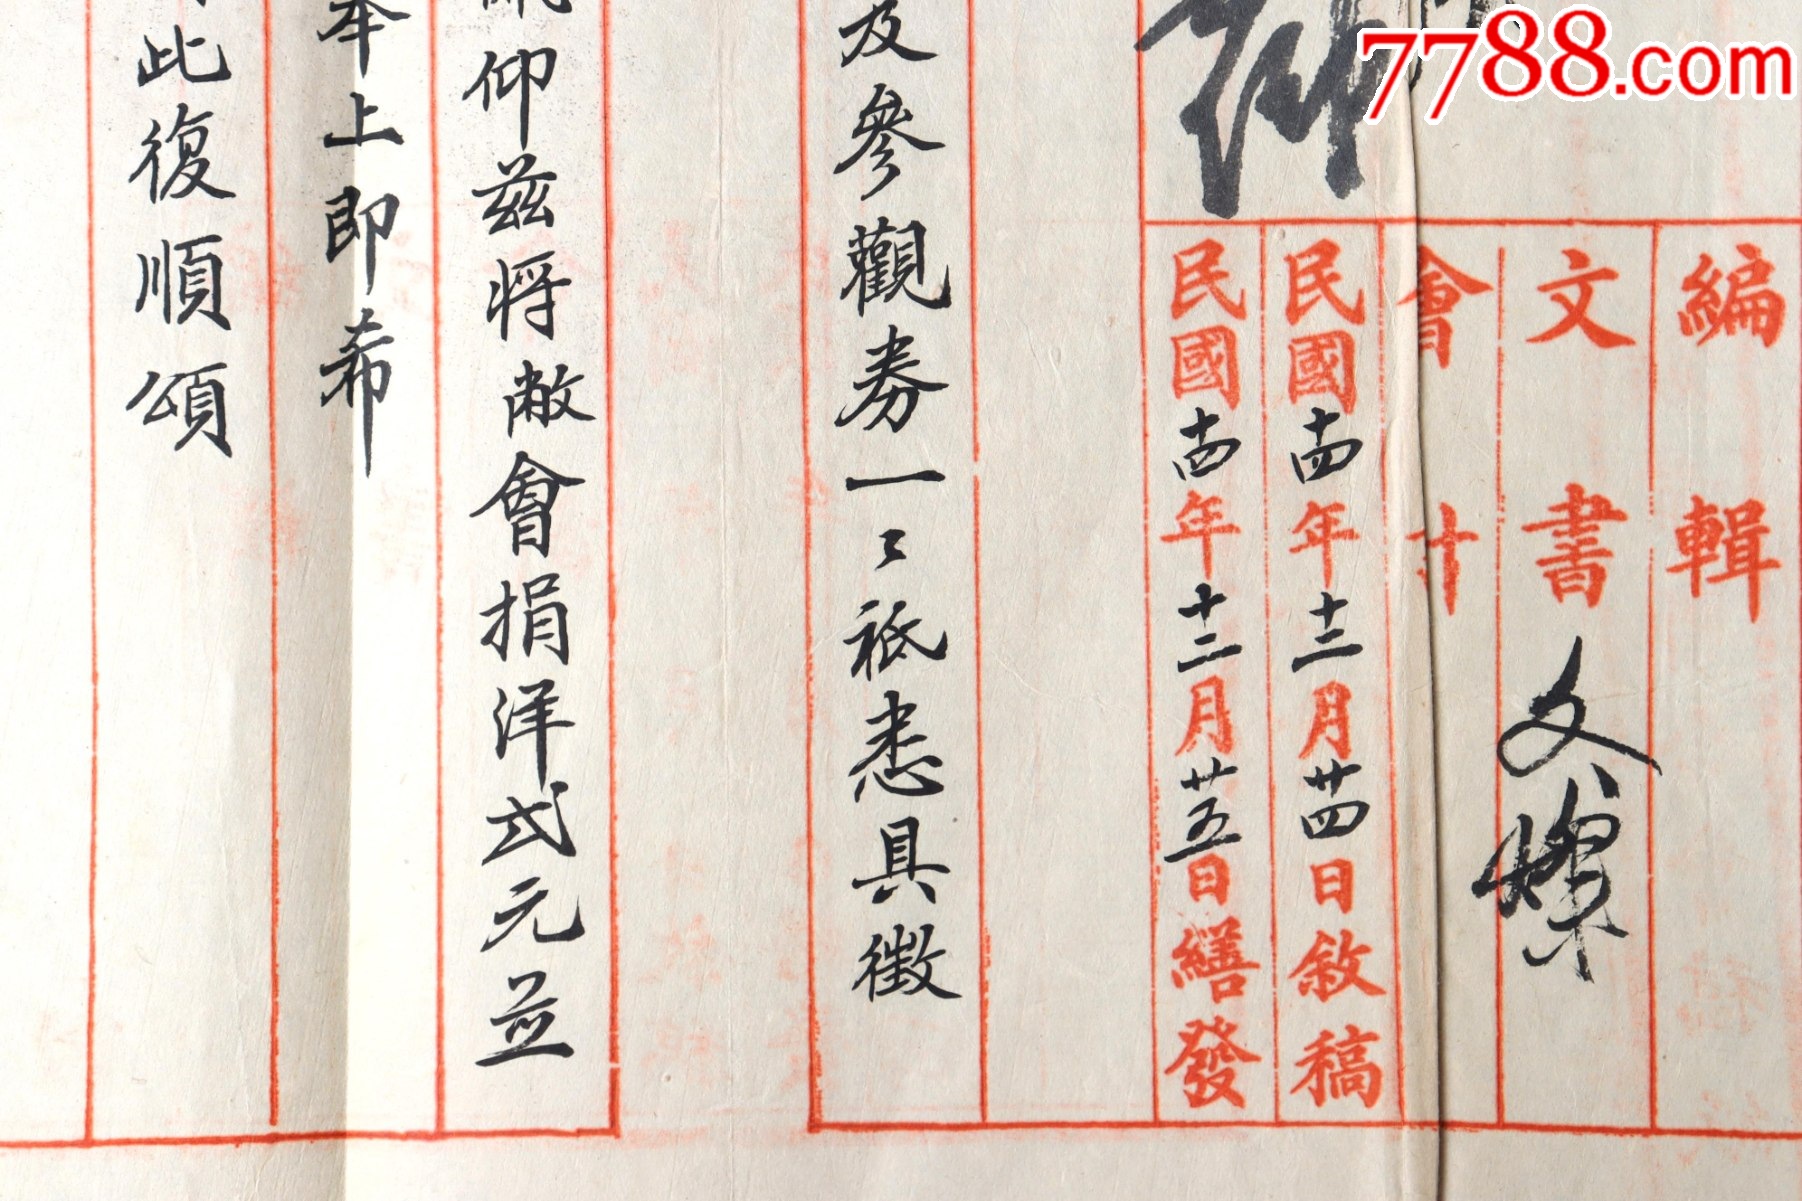 7788.com
編輯
文書 文燦
會計
民國十四年十二月廿四日敘稿
民國十四年十二月廿五日繕發
及參觀券一〻祇悉具徵
仰茲將敝會捐洋弍元並
奉上即希
此復順頌